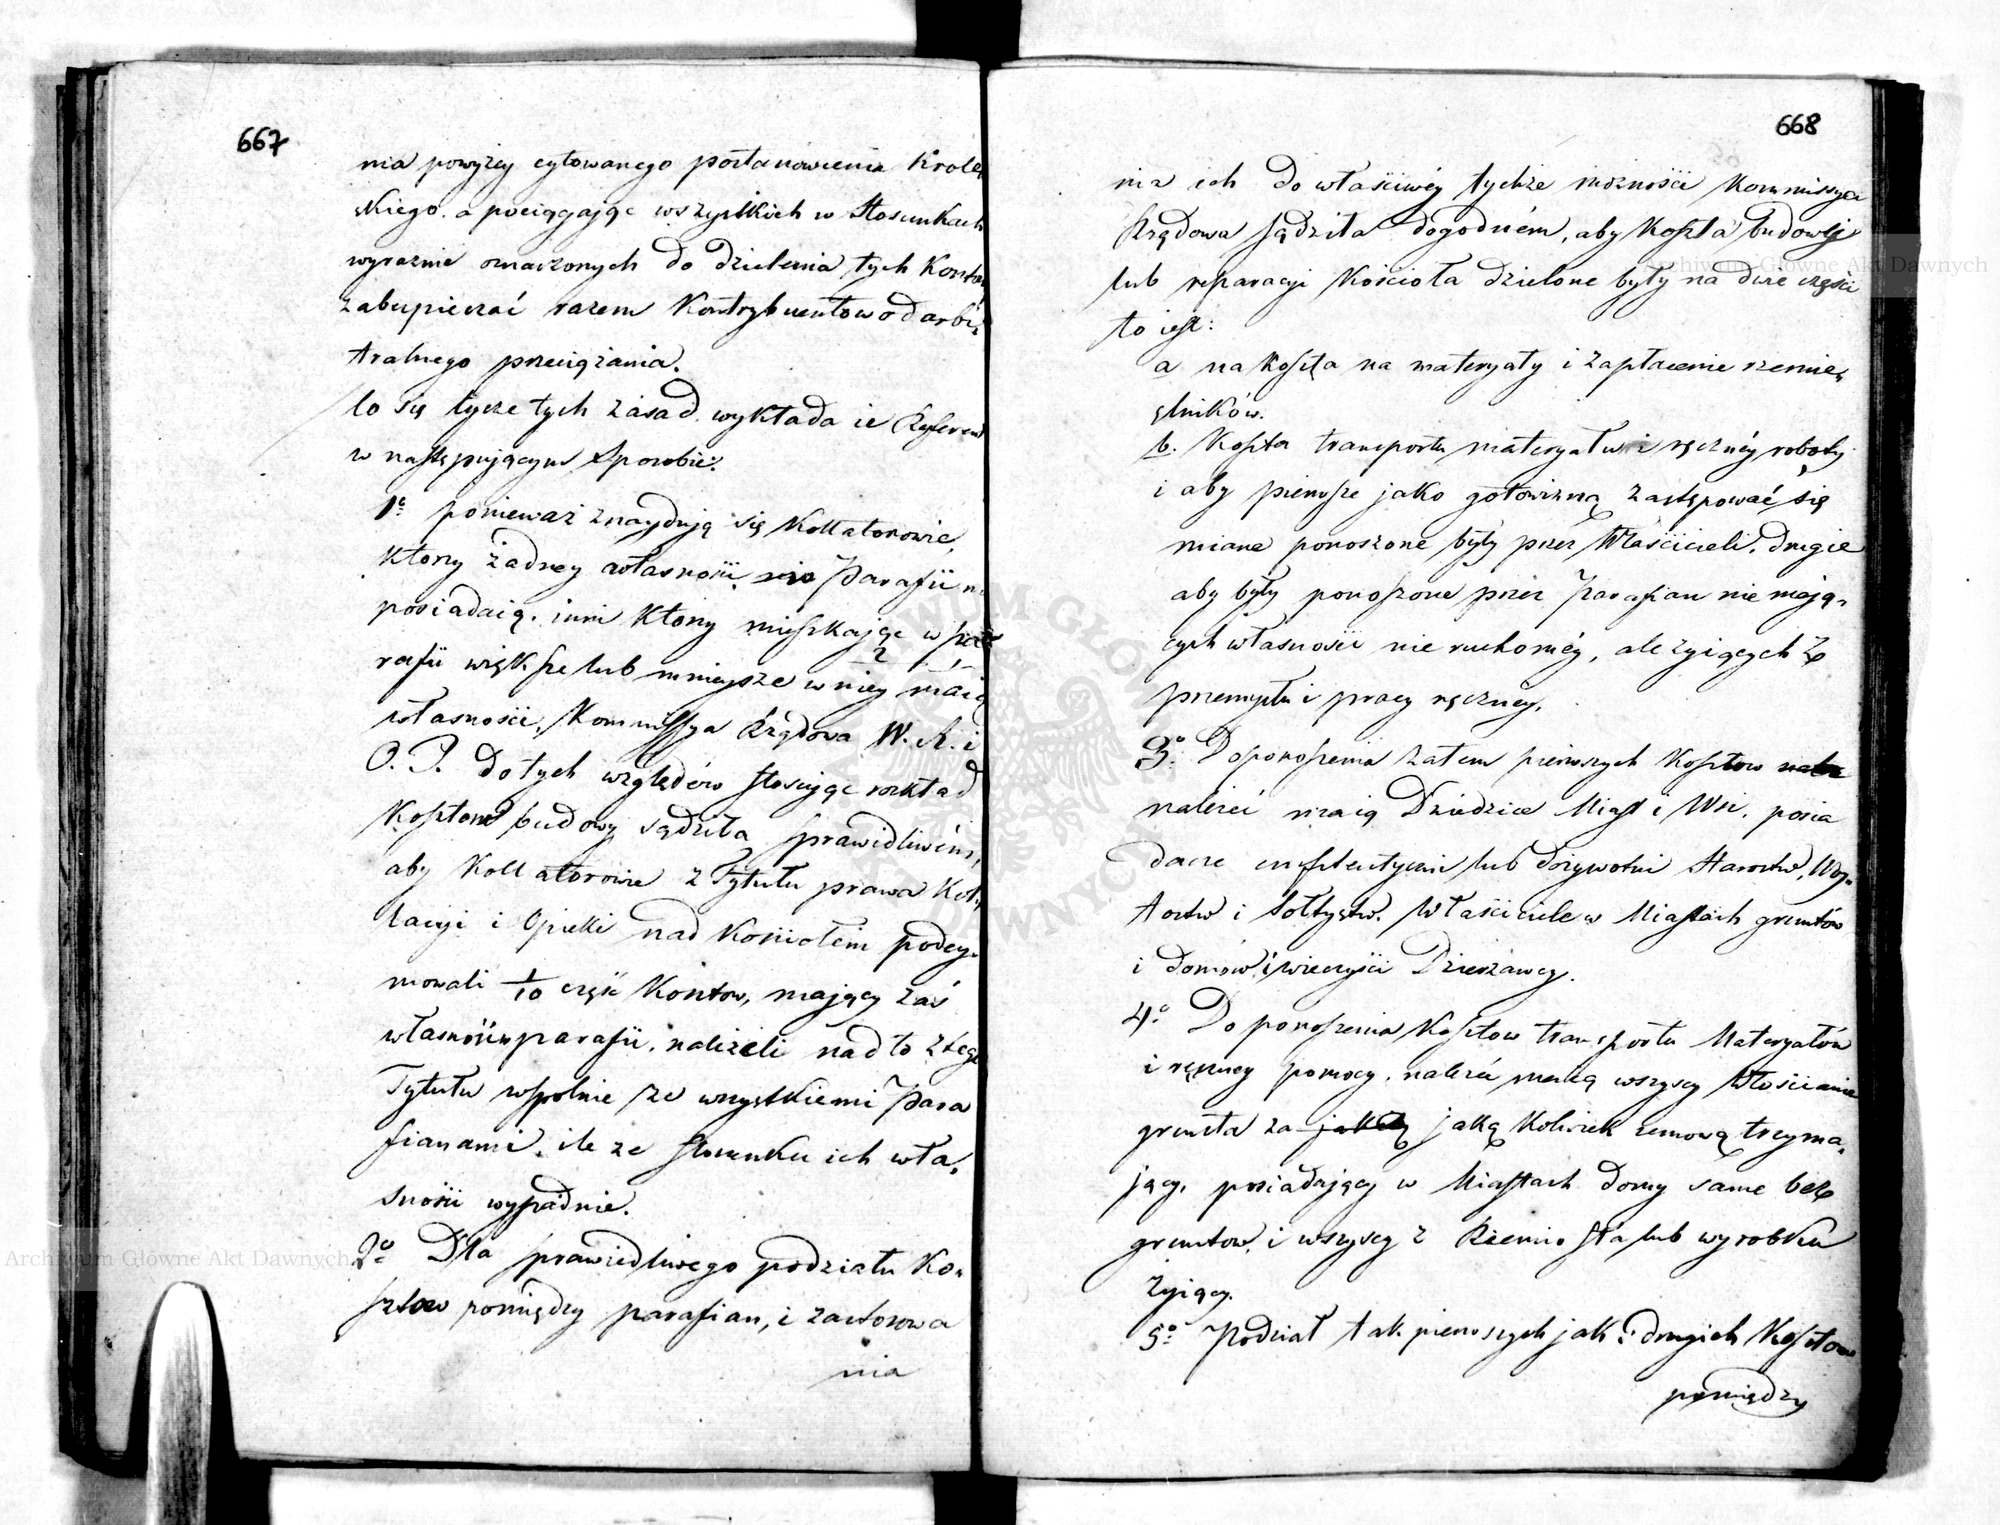 667
nia powyżey cytowanego postanowienia Krole,
wskiego, a pociągając wszystkich w Stosunkach
wyraznie oznaczonych do dzielenia tych Kosztów
zabespieczać razem Kontrybuentow od arbi,
tralnego przeciążania.
Co się tycze tych zasad wykłada ie Referent
w następującym Sposobie:
1o ponieważ znayduią się Kollatorowie,
ktory żadney własności w Parafii nie
posiadaią, inni Ktory mieszkając w pa
rafii większe lub mnieysze w niey maią
własności, Kommissya Rządowa W. R. i
O. P. do tych względów stosując rozkład
Kosztow budowy sądziła sprawidliwém,
aby Kollatorowie z Tytułu prawa Kol,
lacyi i Opieki nad Kościołem podey,
mowali 1/10 część Kosztow, maiący zaś
własność w parafii, należeli nadto z tego
Tytułu wspolnie ze wszystkiemi Para
fianami, ile ze stosunku ich wła,
sności wypadnie.
2o Dla sprawiedliwego podziału Ko,
sztow pomiędzy parafian, i zastosowa
nia
668
nia ich do właściwéy tychże możności Kommissya
Rządowa sądziła dogodném, aby Koszta budowy
lub reparacyi Kościoła dzielone były na dwie części
to iest:
a na koszta na materyały i zapłacenie rzemie,
ślników.
b. Koszta transportu materyałów i ręcznéy roboty
i aby pierwsze jako gotowizną zastępować się
miane ponoszone były przez Właścicieli, drugie
aby były ponoszone przez Parafian nie mają,
cych własności nie ruchoméy, ale żyiących ze
przemysłu i pracy ręczney.
3o Do ponoszenia zatem pierwszych Kosztow
należeć maią Dziedzice Miast i Wsi, posia
dacze emfiteutyczni lub dożywotni Starostw, Wóy,
tostw i Sołtystw, Właściciele w Miastach gruntów
i domów i wieczyści Dzierżawcy.
4o Do ponoszenia Kosztow transportu Materyałów
i ręczney pomocy, należeć maią wszyscy Włościanie
grunta za jaką jaką kolwiek umową trzyma,
jący, posiadający w Miastach domy same beze
gruntow, i wszyscy z Rzemiosła lub wyrobku
żyiący.
5o Podział tak pierwszych jak i drugich Kosztow
pomiędzy
Archiwum Główne Akt Dawnych
Archiwum Główne Akt Dawnych